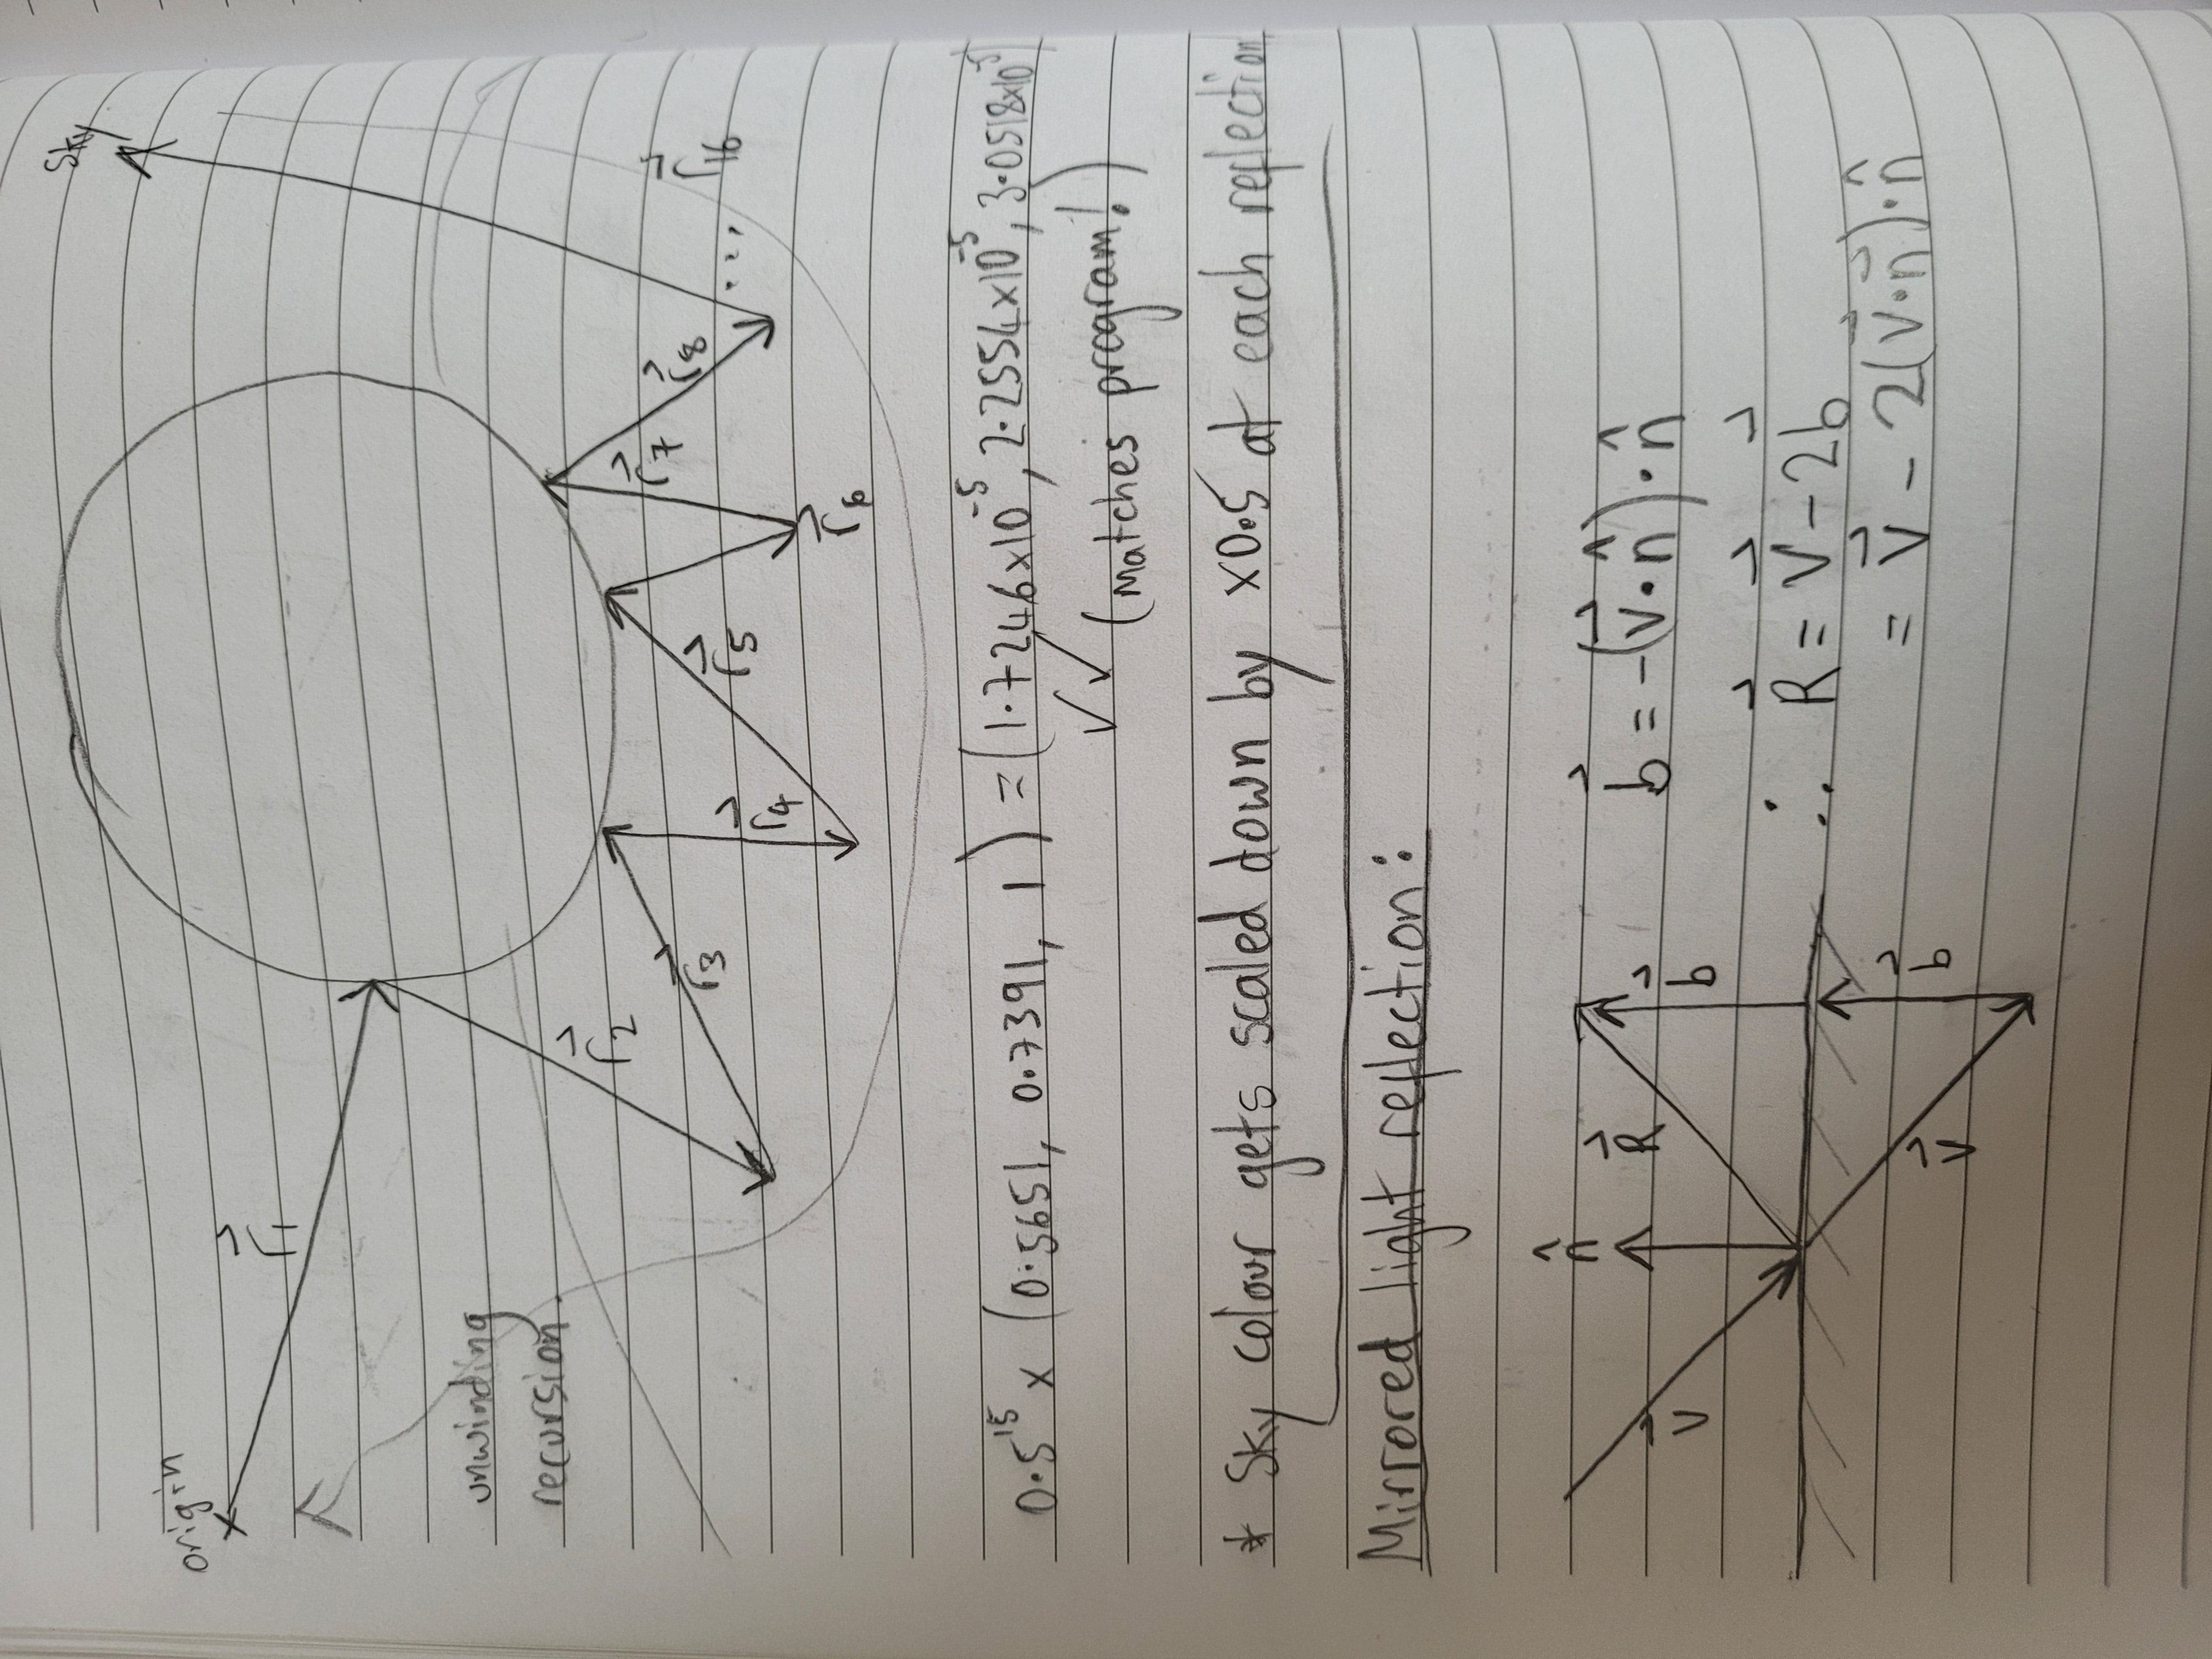 Sky
origin
r⃗₁
unwinding
recursion.
r⃗₂
r⃗₃
r⃗₄
r⃗₅
r⃗₆
r⃗₇
r⃗₈
...
r⃗₁₆
0.5¹⁵ x (0.5651, 0.7391, 1) = (1.7246x10⁻⁵, 2.2554x10⁻⁵, 3.0518x10⁻⁵)
✓✓ (matches program!)
* Sky colour gets scaled down by x0.5 at each reflection
Mirrored light reflection:
n̂
v⃗
R⃗
b⃗
b⃗ = -(v⃗·n̂)·n̂
∴ R⃗ = v⃗ - 2b⃗
= v⃗ - 2(v⃗·n⃗)·n̂
v⃗
b⃗